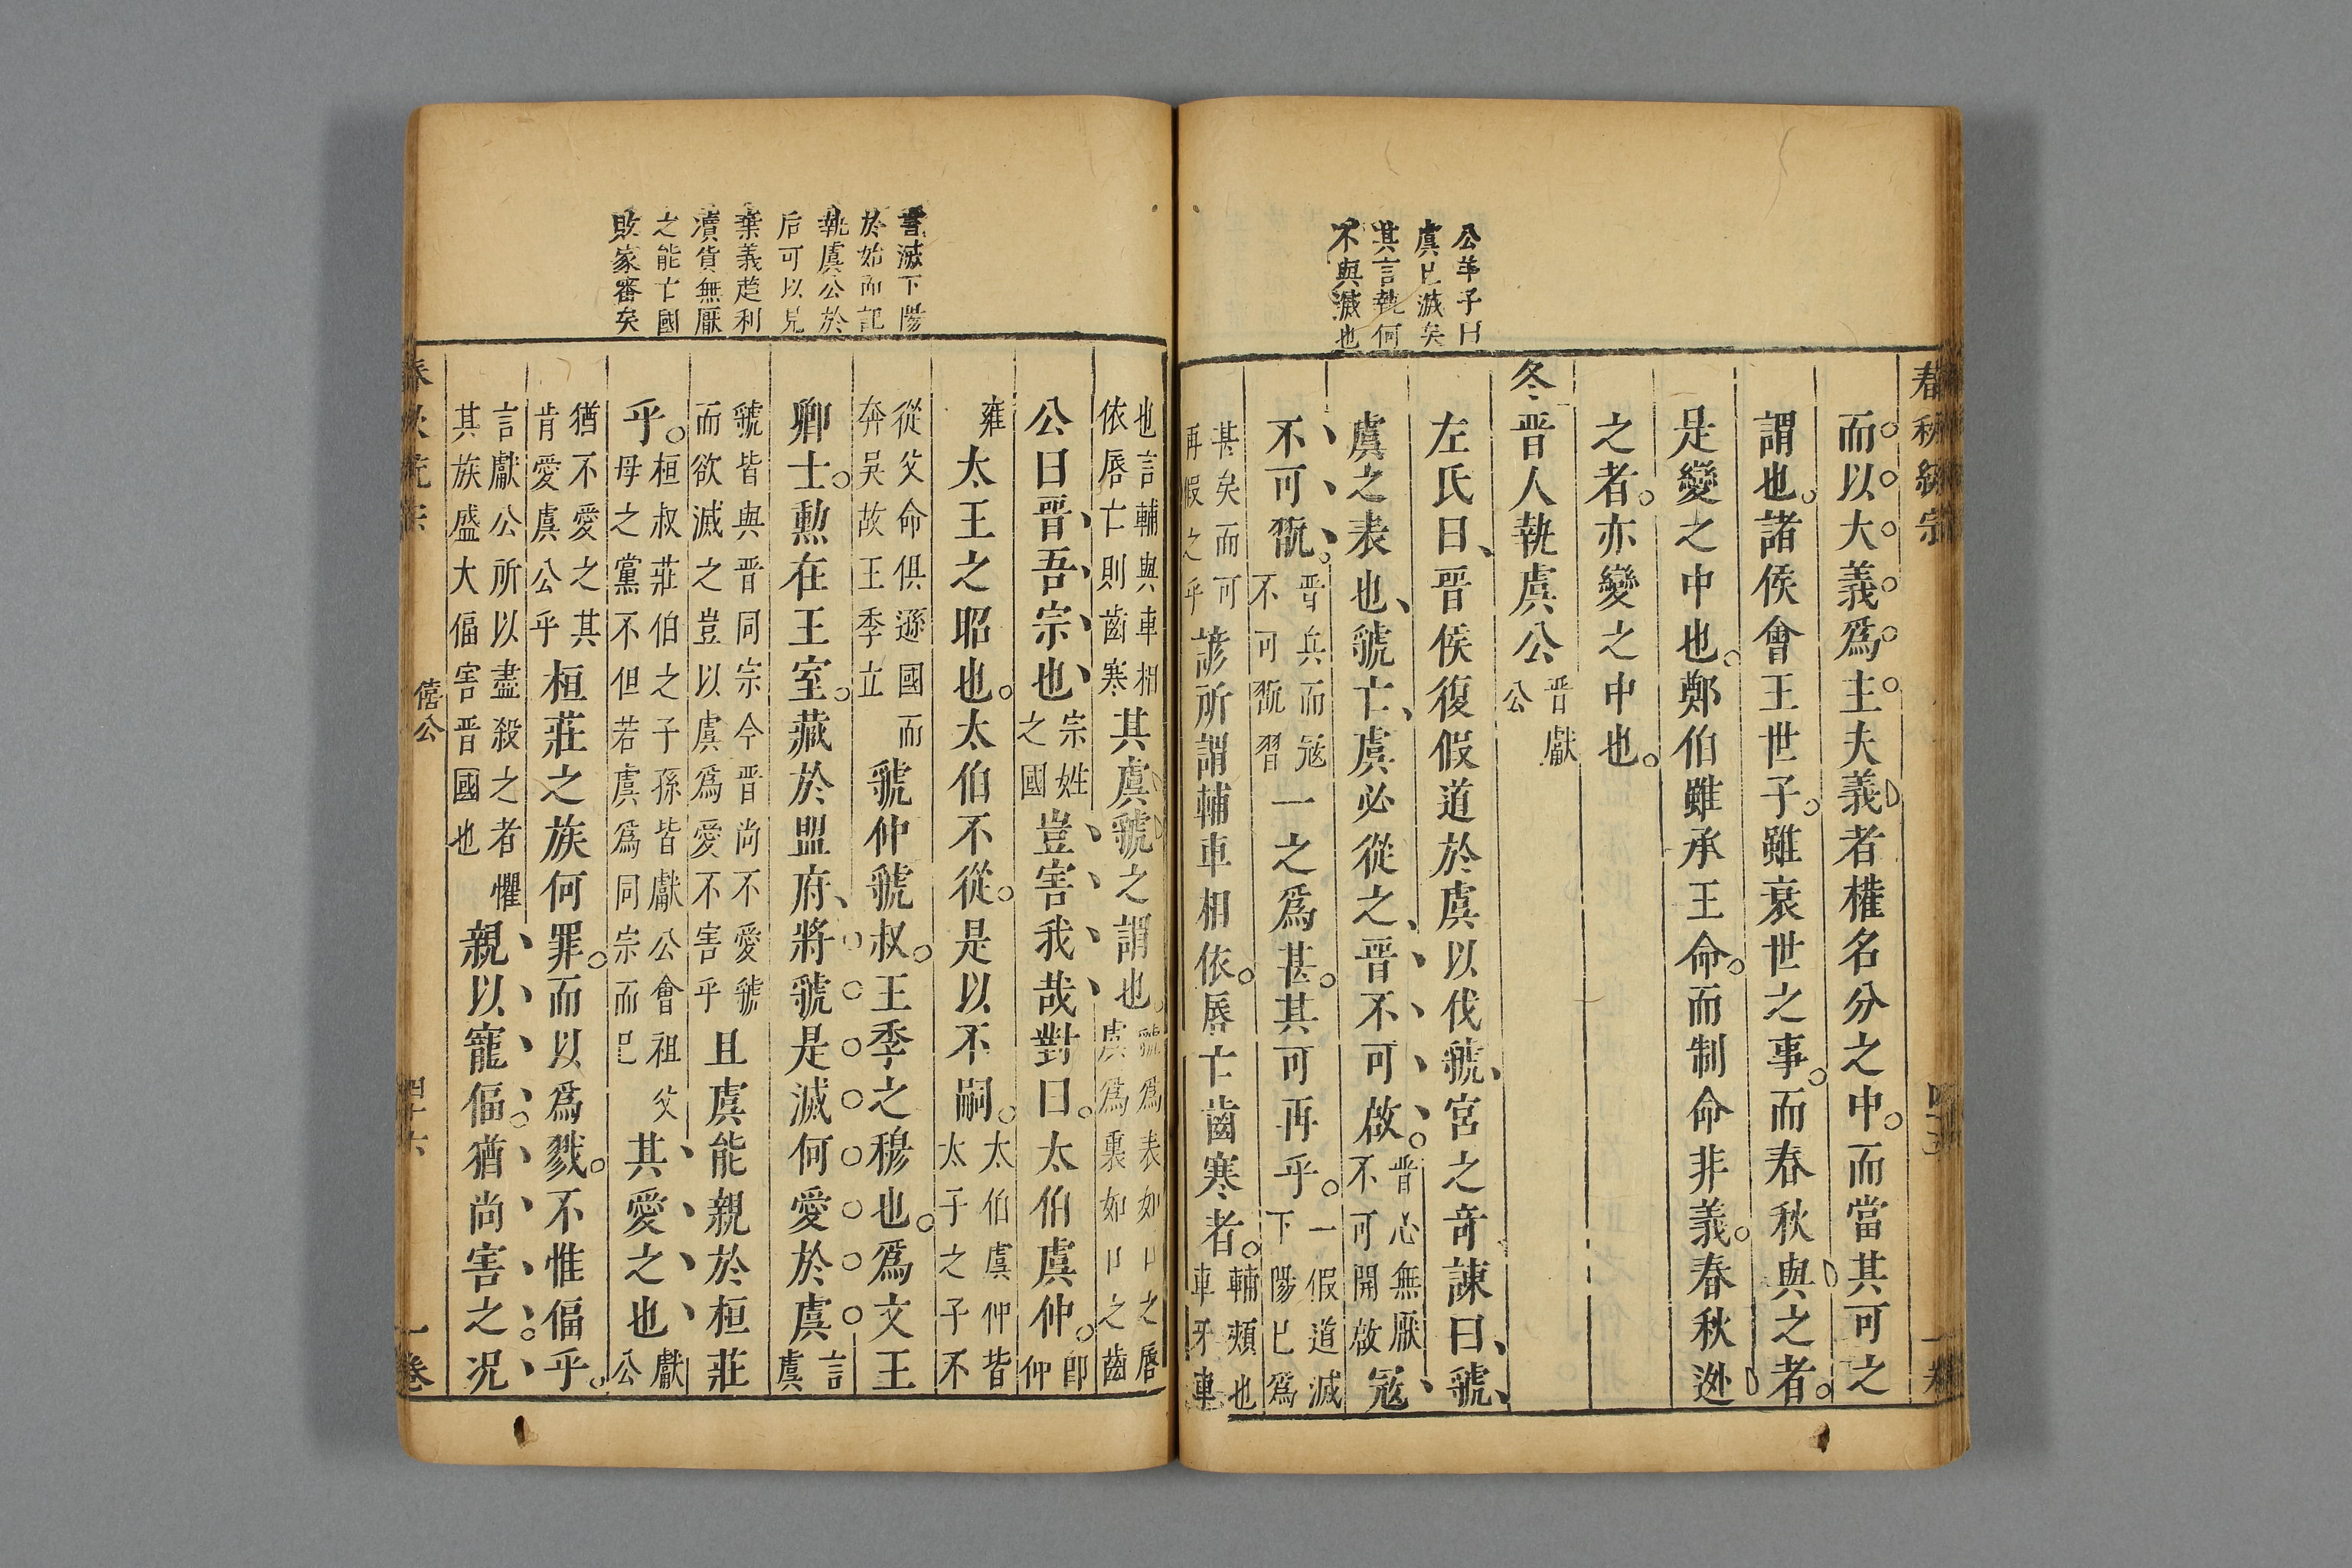 春秋統宗
公羊子曰
虞已滅矣
其言執何
不與滅也
而以大義爲主夫義者權名分之中而當其可之
謂也諸侯會王世子雖衰世之事而春秋與之者
是變之中也鄭伯雖承王命而制命非義春秋逃
之者亦變之中也
冬晋人執虞公晋獻公
左氏曰晋侯復假道於虞以伐虢宮之奇諫曰虢
虞之表也虢亡虞必從之晋不可啟晋心無厭不可開啟寇
不可翫晋兵而寇不可翫習一之爲甚其可再乎一假道滅下陽已爲
甚矣而可再假之乎諺所謂輔車相依唇亡齒寒者輔頰也車牙車
書滅下陽
於始而記
執虞公於
后可以見
棄義趋利
瀆貨無厭
之能亡國
敗家審矣
也言輔與車相依唇亡則齒寒其虞虢之謂也虢爲表如口之唇虞爲裏如口之齒
公曰晋吾宗也宗姓之國豈害我哉對曰太伯虞仲卽仲
雍太王之昭也太伯不從是以不嗣太伯虞仲皆太子之子不
從父命俱遜國而奔吴故王季立虢仲虢叔王季之穆也爲文王
卿士勲在王室藏於盟府將虢是滅何愛於虞言虞
虢皆與晋同宗今晋尚不愛虢而欲滅之豈以虞爲愛不害乎且虞能親於桓莊
乎桓叔莊伯之子孫皆獻公會祖父母之黨不但若虞爲同宗而已其愛之也獻公
猶不愛之其肯愛虞公乎桓莊之族何罪而以爲戮不惟偪乎
言獻公所以盡殺之者懼其族盛大偪害晋國也親以寵偪猶尚害之况
春秋統宗
僖公
四十六
一卷